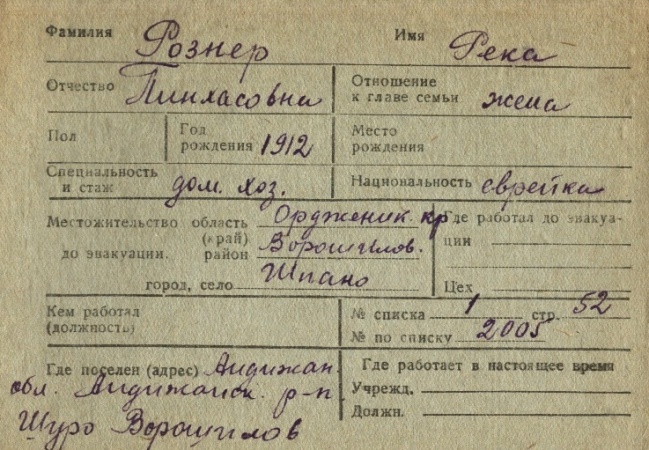 Фамилия Рознер Имя Река
Отчество Пинхасовна Отношение к главе семьи жена
Пол Год рождения 1912 Место рождения
Специальность и стаж дом. хоз. Национальность еврейка
Местожительство область Ордженик. кр. Где работал до эвакуа-
(край) ции
до эвакуации. район Ворошилов.
город, село Шпано Цех
Кем работал № списка 1 стр. 52
(должность) № по списку 2005
Где поселен (адрес) Андижан. Где работает в настоящее время
обл. Андижанск. р-н Учрежд.
Шуро Ворошилов Должн.